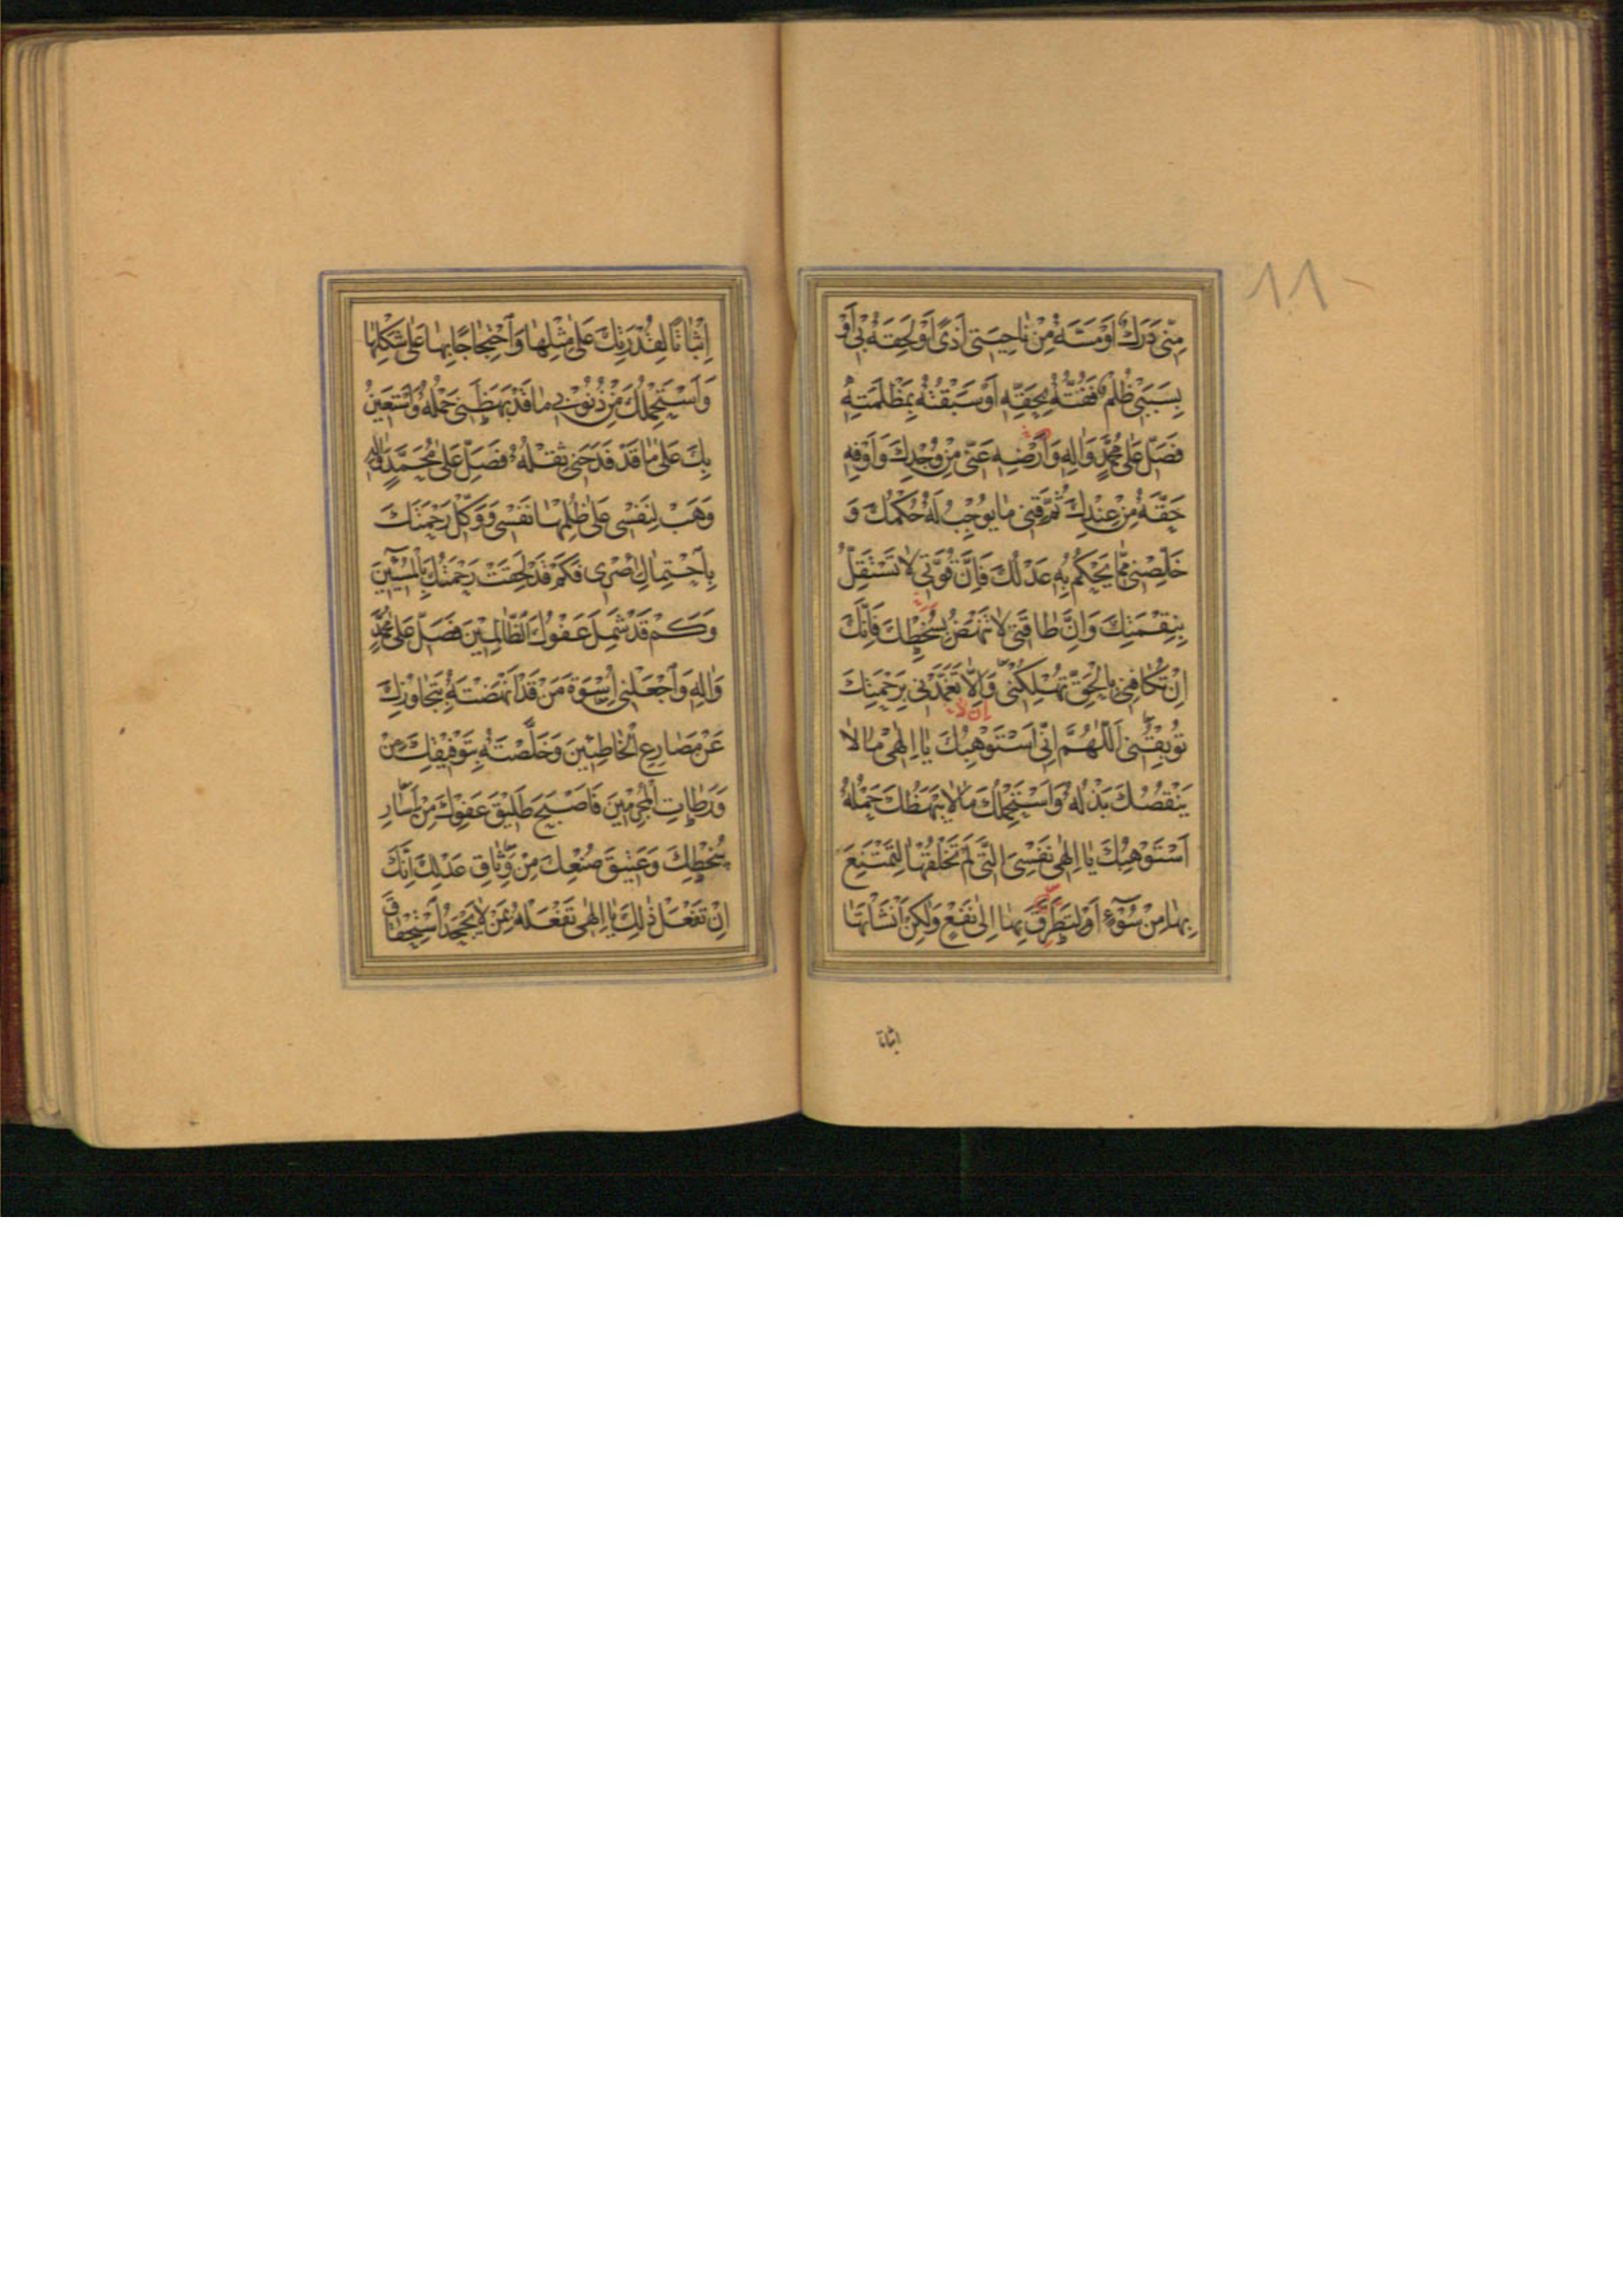 ١١٠
مِنّى دَرَكٌ اَوْ مَسَّهُ مِنْ نٰاحِيَتى اَذًى اَوْ لَحِقَهُ بى اَوْ
بِسَبَبى ظُلْمٌ فَفُتُّهُ بِحَقِّهِ اَوْ سَبَقْتُهُ بِمَظْلَمَتِهِ
فَصَلِّ عَلٰى مُحَمَّدٍ وَاٰلِهِ وَاَرْضِهِ عَنّى مِنْ وُجْدِكَ وَاَوْفِهِ
حَقَّهُ مِنْ عِنْدِكَ ثُمَّ قِنى مٰا يُوجِبُ لَهُ حُكْمُكَ وَ
خَلِّصْنى مِمّٰا يَحْكُمُ بِهِ عَدْلُكَ فَاِنَّ قُوَّتى لٰا تَسْتَقِلُّ
بِنِقْمَتِكَ وَاِنَّ طٰاقَتى لٰا تَنْهَضُ بِسُخْطِكَ فَاِنَّكَ
اِنْ تُكٰافِنى بِالْحَقِّ تُهْلِكْنى وَاِلّٰا تَغَمَّدْنى بِرَحْمَتِكَ
اِن لا
تُوبِقْنى اَللّٰهُمَّ اِنّى اَسْتَوْهِبُكَ يٰا اِلٰهى مٰا لٰا
يَنْقُصُكَ بَذْلُهُ وَاَسْتَحْمِلُكَ مٰا لٰا يَبْهَظُكَ حَمْلُهُ
اَسْتَوْهِبُكَ يٰا اِلٰهى نَفْسِىَ الَّتى لَمْ تَخْلُقْهٰا لِتَمْتَنِعَ
بِهٰا مِنْ سُوۤءٍ اَوْ لِتَطَرَّقَ بِهٰا اِلٰى نَفْعٍ وَلٰكِنْ اَنْشَاْتَهٰا
اثباتا
اِثْبٰاتًا لِقُدْرَتِكَ عَلٰى مِثْلِهٰا وَاحْتِجٰاجًا بِهٰا عَلٰى شَكْلِهٰا
وَاَسْتَحْمِلُكَ مِنْ ذُنُوبى مٰا قَدْ بَهَظَنى حَمْلُهُ وَاَسْتَعينُ
بِكَ عَلٰى مٰا قَدْ فَدَحَنى ثِقْلُهُ فَصَلِّ عَلٰى مُحَمَّدٍ وَاٰلِهِ
وَهَبْ لِنَفْسى عَلٰى ظُلْمِهٰا نَفْسى وَوَكِّلْ رَحْمَتَكَ
بِاحْتِمٰالِ اِصْرى فَكَمْ قَدْ لَحِقَتْ رَحْمَتُكَ بِالْمُسيۤئينَ
وَكَمْ قَدْ شَمِلَ عَفْوُكَ الظّٰالِمينَ فَصَلِّ عَلٰى مُحَمَّدٍ
وَاٰلِهِ وَاجْعَلْنى اُسْوَةَ مَنْ قَدْ اَنْهَضْتَهُ بِتَجٰاوُزِكَ
عَنْ مَصٰارِعِ الْخٰاطِئينَ وَخَلَّصْتَهُ بِتَوْفيقِكَ مِنْ
وَرَطٰاتِ الْمُجْرِمينَ فَاَصْبَحَ طَليقَ عَفْوِكَ مِنْ اِسٰارِ
سُخْطِكَ وَعَتيقَ صُنْعِكَ مِنْ وَثٰاقِ عَدْلِكَ اِنَّكَ
اِنْ تَفْعَلْ ذٰلِكَ يٰا اِلٰهى تَفْعَلْهُ بِمَنْ لٰا يَجْحَدُ اسْتِحْقٰاقَ